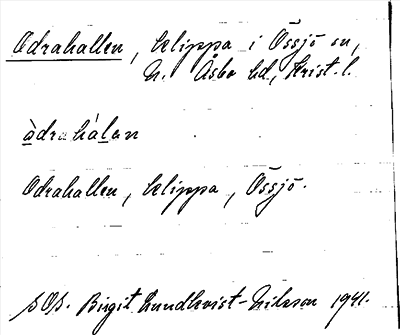 Odrahallen, klippa i Össjö sn,
N. Åsbo hd, Krist. l.
àdrahálan
Odrahallen, klippa, Össjö.
s. Birgit Lundkvist-Nilsson 1941.